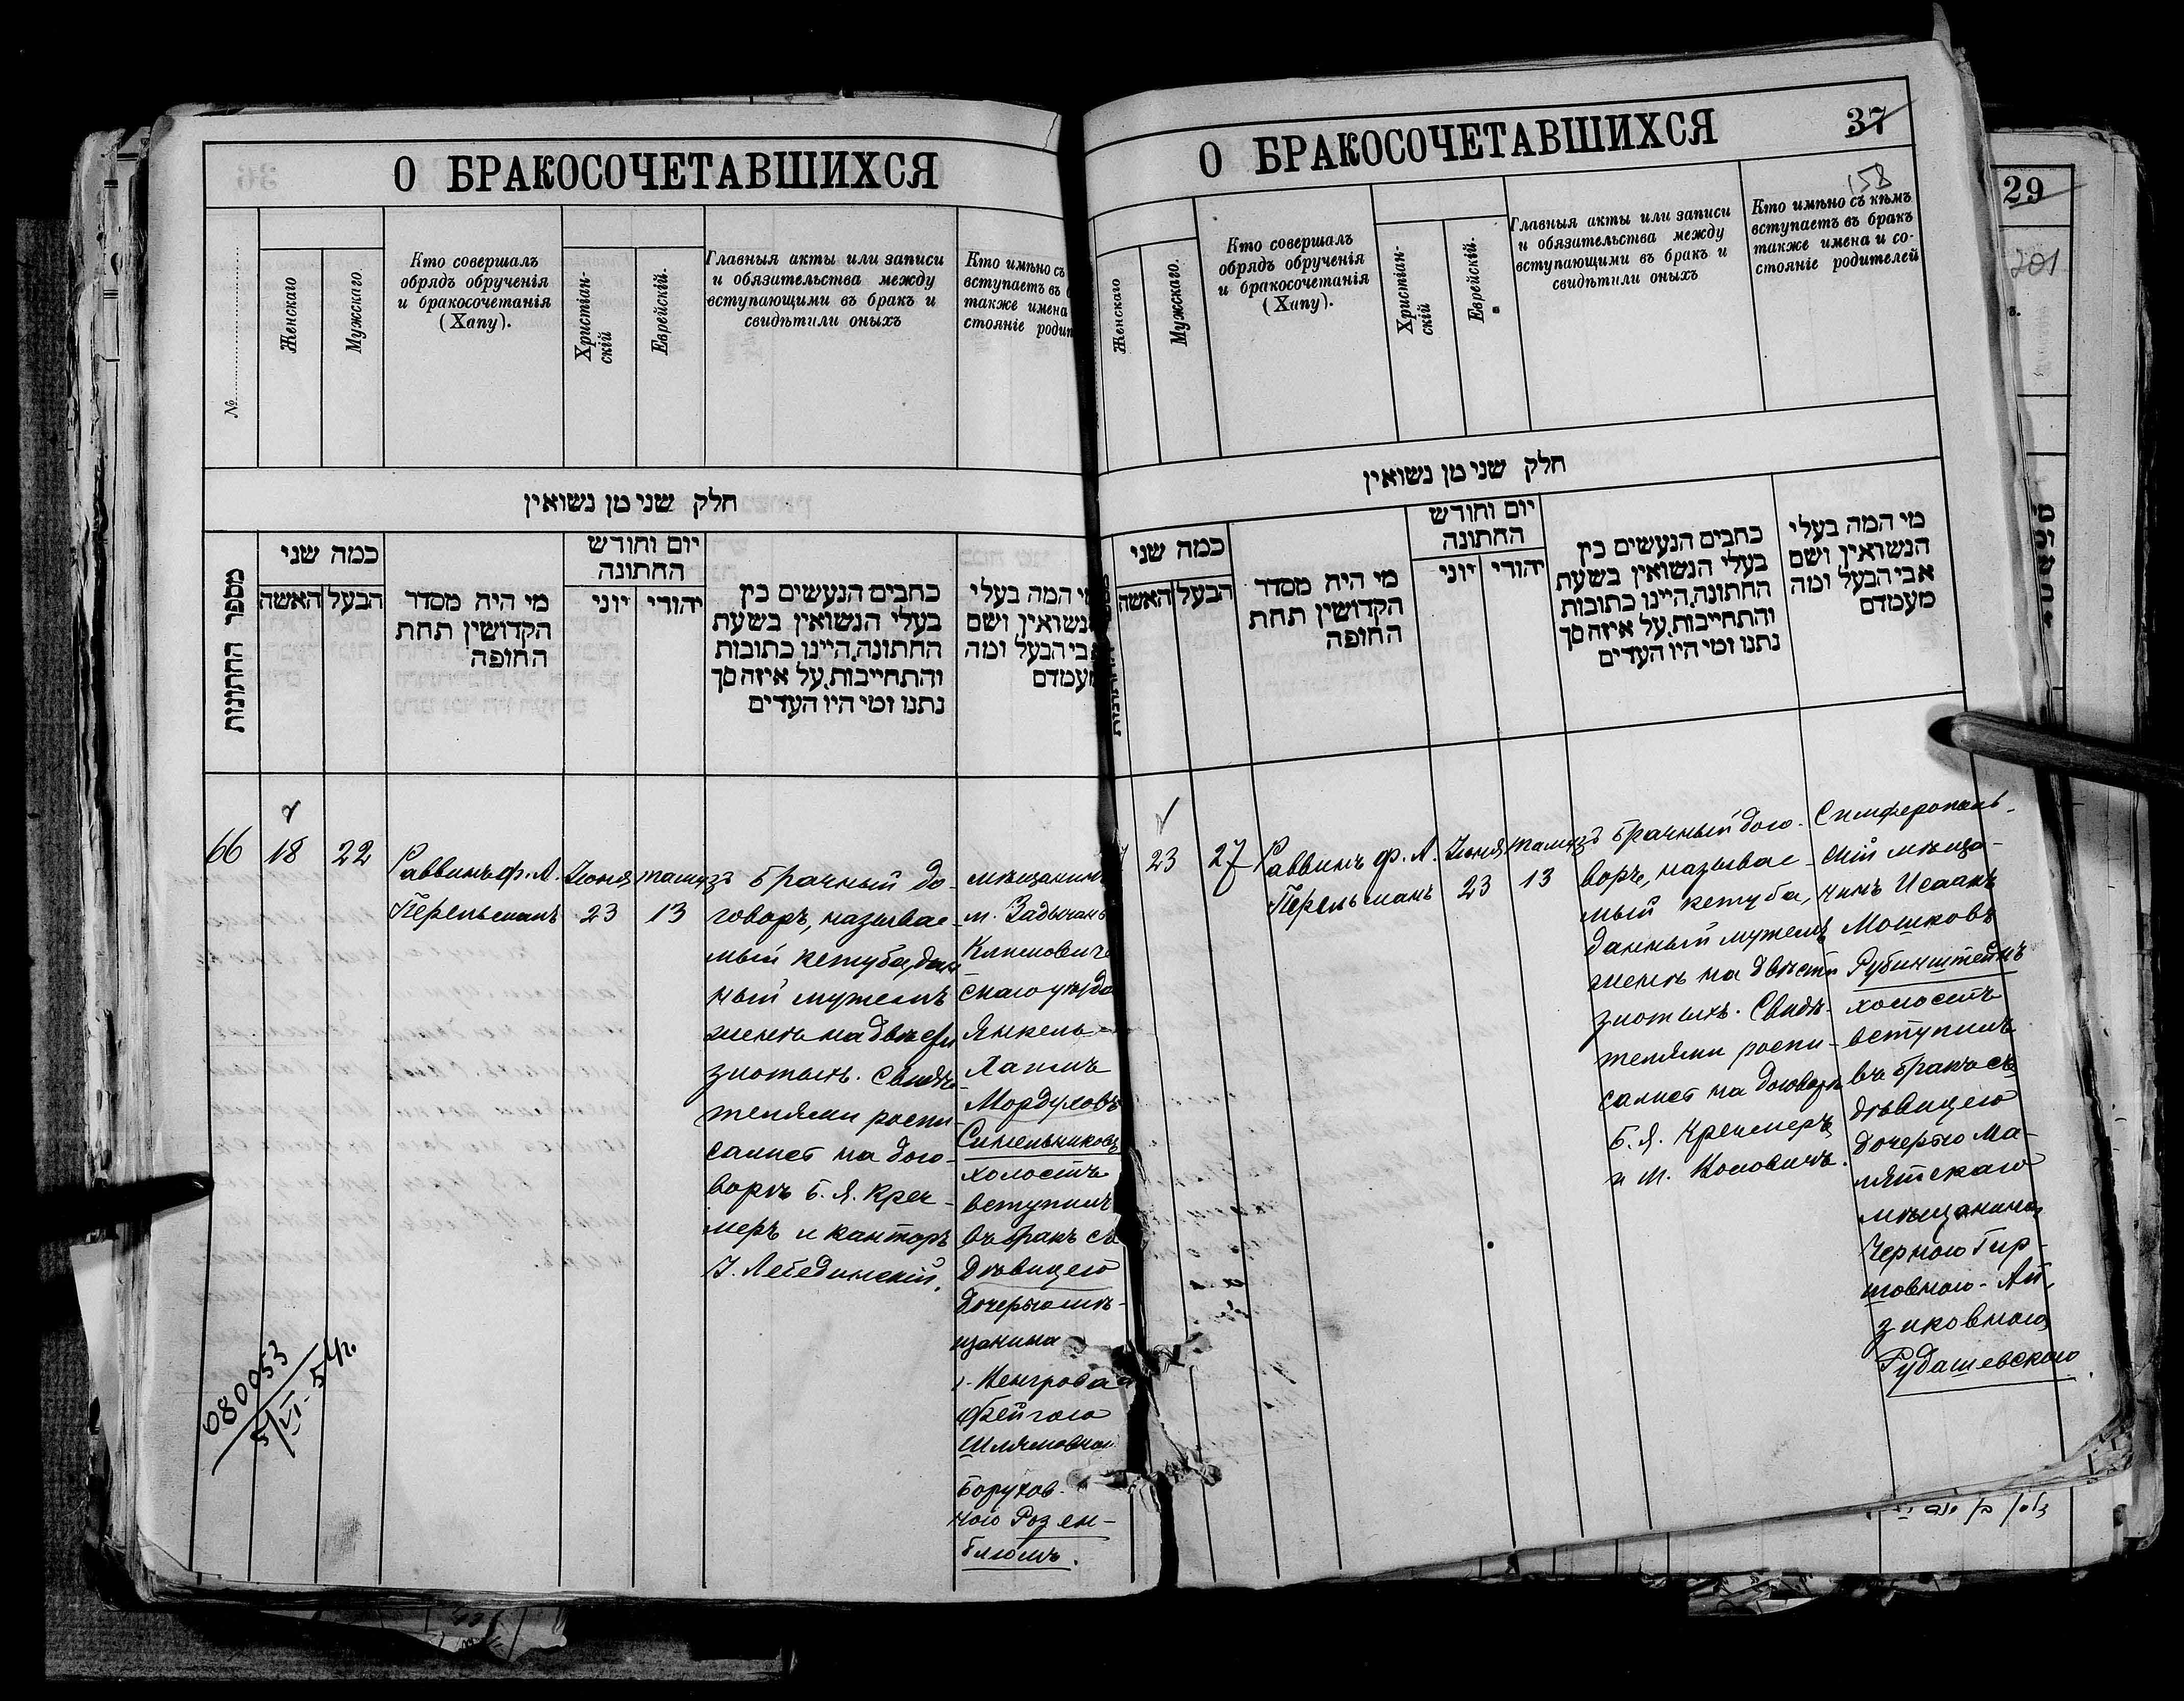 О БРАКОСОЧЕТАВШИХСЯ
№
Женскаго
Мужскаго
Кто совершалъ
обрядъ обрученія
и бракосочетанія
(Хупу).
Христіан-
скій
Еврейскій.
Главныя акты или записи
и обязательства между
вступающими въ бракъ и
свидѣтили оныхъ
Кто имѣно съ
вступаетъ въ
также имена
стояніе родит
חלק שני מן נשואין
מספר החתונות
כמה שני
האשה
הבעל
מי היה מסדר
הקדושין תחת
החופה
יום וחודש
החתונה
יוני
יהודי
כתבים הנעשים בין
בעלי הנשואין בשעת
החתונה, היינו כתובות
והתחייבות, על איזה סך
נתנו ומי היו העדים
מי המה בעלי
הנשואין ושם
אבי הבעל ומה
מעמדם
66
18
22
Раввинъ ф. А.
Перельманъ
Іюня
23
тамузъ
13
Брачный до-
говоръ, называе-
мый кетуба, дан
ный мужемъ
женѣ на двѣсти
злотыхъ. Свидѣ-
телями роспи-
сались на дого-
ворѣ Б. Я. Крег-
меръ и канторъ
Лебединскій.
мѣщанинъ
м.
скаго уѣзда
Янкель-
Хаимъ
Мордуховъ
Синельниковъ
холостъ
вступилъ
въ бракъ съ
дѣвицею
дочерью мѣ-
щанина
г. Венгрова
Фейгою
Шлямовною
Борухов-
ною Розен-
блюмъ.
080053
5/VI-54г.
О БРАКОСОЧЕТАВШИХСЯ
37
158
Женскаго
Мужскаго.
Кто совершалъ
обрядъ обрученія
и бракосочетанія
(Хупу).
Христіан-
скій
Еврейскій.
Главныя акты или записи
и обязательства между
вступающими въ бракъ и
свидѣтили оныхъ
Кто имѣно съ кѣмъ
вступаетъ въ бракъ
также имена и со-
стояніе родителей
חלק שני מן נשואין
כמה שני
האשה
הבעל
מי היה מסדר
הקדושין תחת
החופה
יום וחודש
החתונה
יוני
יהודי
כתבים הנעשים בין
בעלי הנשואין בשעת
החתונה, היינו כתובות
והתחייבות, על איזה סך
נתנו ומי היו העדים
מי המה בעלי
הנשואין ושם
אבי הבעל ומה
מעמדם
23
27
Раввинъ ф. А.
Перельманъ
Іюня
23
тамузъ
13
Брачный дого-
воръ, называе-
мый кетуба,
данный мужемъ
женѣ на двѣсти
злотыхъ. Свидѣ-
телями роспи-
сались на договорѣ
Б. Я. Крегмеръ
и М.
Симферополь-
скій мѣща-
нинъ Исаакъ
Мошковъ
Рубинштейнъ
холостъ
вступилъ
въ бракъ съ
дѣвицею
дочерью Ма-
лятскаго
мѣщанина
Черною Гир-
шовною-Ай-
зиковною
Рудашевскою.
29
201